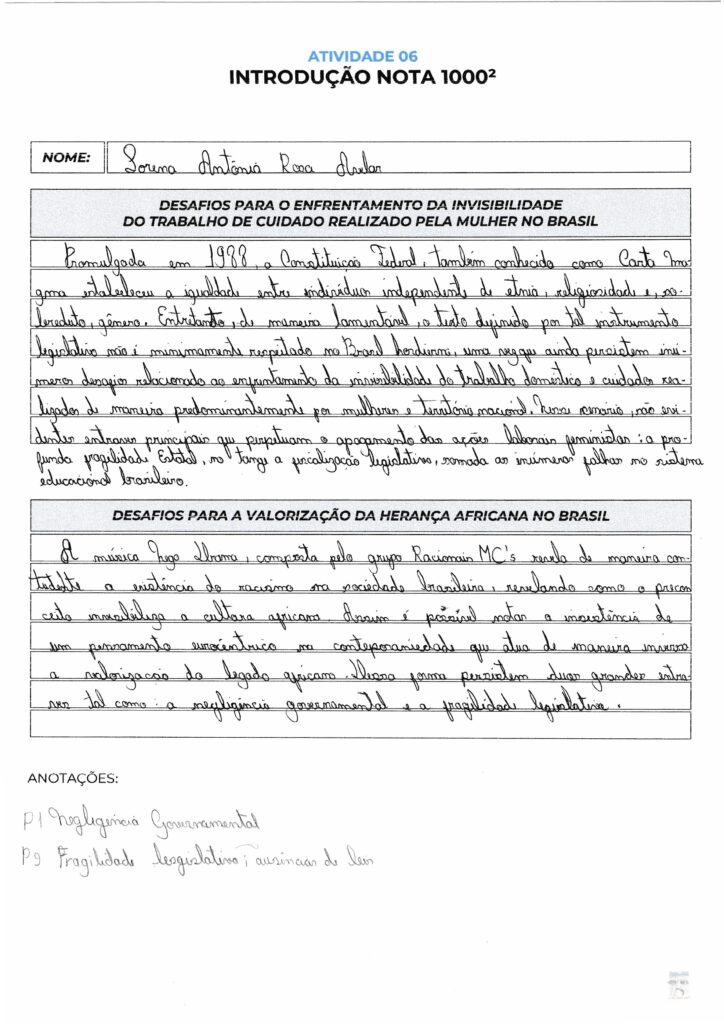 ATIVIDADE 06
INTRODUÇÃO NOTA 1000²
NOME: Lorena Antônia Rosa Avelar
DESAFIOS PARA O ENFRENTAMENTO DA INVISIBILIDADE
DO TRABALHO DE CUIDADO REALIZADO PELA MULHER NO BRASIL
Promulgada em 1988, a Constituição Federal, também conhecido como Carta Ma-
gma estabeleceu a igualdade entre indivíduos independente de etnia, religiosidade e, so-
bretudo, gênero. Entretanto, de maneira lamentável, o texto definido por tal instrumento
legislativo não é minimamente respeitado no Brasil hodierno, uma vez que ainda persistem inú-
meros desafios relacionado ao enfrentamento da invisibilidade do trabalho doméstico e cuidados rea-
lizados de maneira predominantemente por mulheres e território nacional. Nesse cenário, são evi-
dentes entraves principais que perpetuam o apagamento das ações laborais feministas: a pro-
funda fragilidade Estatal, no tange a fiscalização legislativa, somada as inúmeras falhas no sistema
educacional brasileiro.
DESAFIOS PARA A VALORIZAÇÃO DA HERANÇA AFRICANA NO BRASIL
A música Nego Drama, composta pelo grupo Racionais MC's revela de maneira con-
tudente a existência do racismo na sociedade brasileira, revelando como o precon
ceito invisibiliza a cultura africana. Assim é possível notar a inexistência de
um pensamento eurocêntrico na conteporaniedade que atua de maneira inversa
a valorização do legado africano. Dessa forma persistem duas grandes entra-
ves tal como: a negligência governamental e a fragilidade legislativa.
ANOTAÇÕES:
P1 Negligência Governamental
P2 Fragilidade lesgislativa; ausências de leis